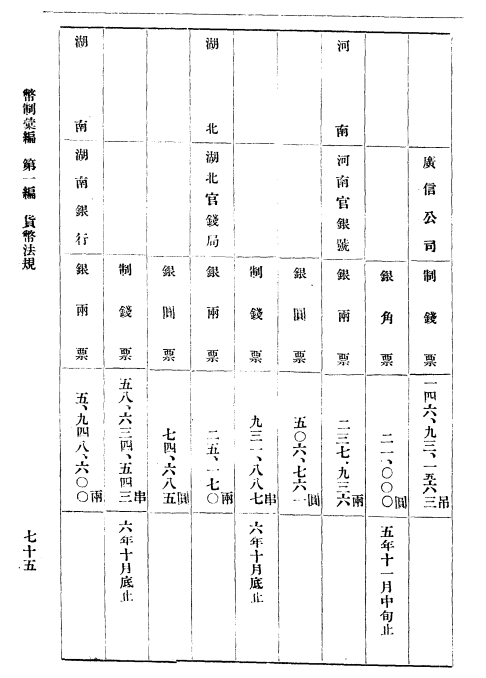 廣信公司 制錢票 一四六、九三、一五六三吊
銀角票 二一、〇〇〇圓 五年十一月中旬止
河南 河南官銀號 銀兩票 二三七、九三六兩
銀圓票 五〇六、七六一圓
制錢票 九三一、八八七串 六年十月底止
湖北 湖北官錢局 銀兩票 二五、一七〇兩
銀圓票 七四、六八五圓
制錢票 五八、六三四、五四三串 六年十月底止
湖南 湖南銀行 銀兩票 五、九四八、六〇〇兩
幣制彙編 第一編 貨幣法規 七十五